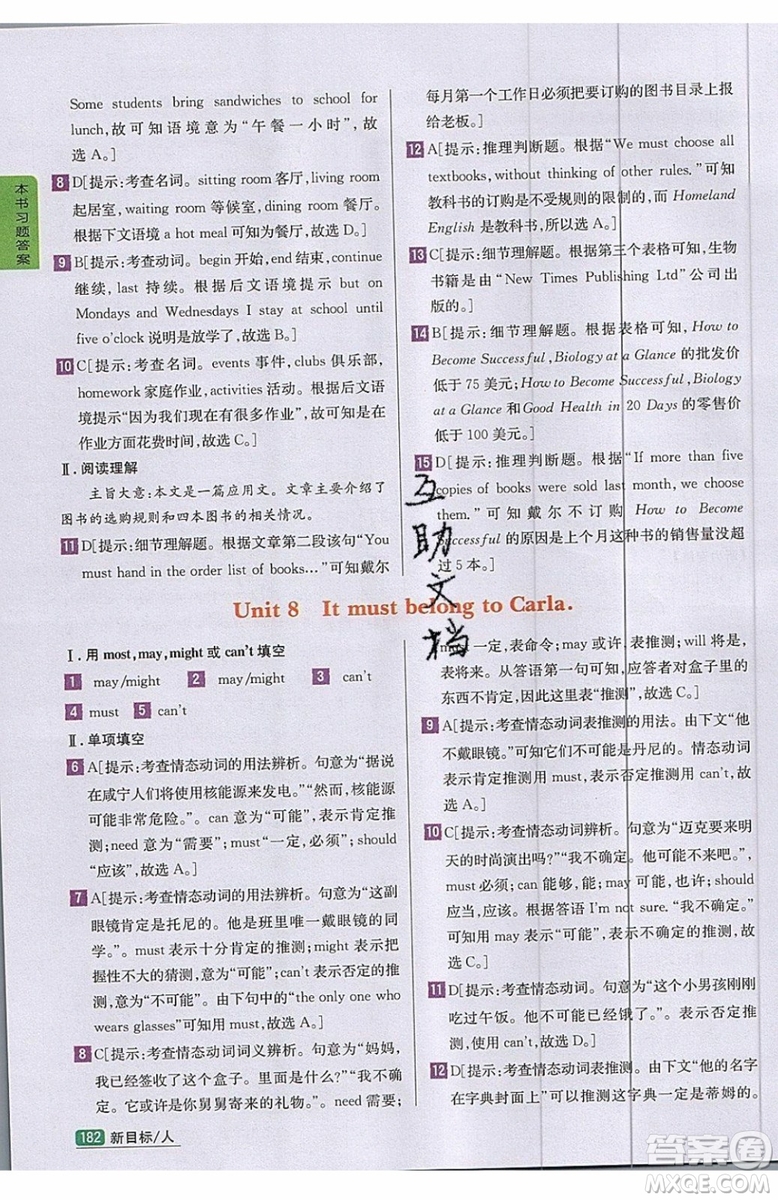 本书习题答案
Some students bring sandwiches to school for
lunch,故可知语境意为“午餐一小时”,故
选A。]
8 D[提示:考查名词。sitting room 客厅,living room
起居室,waiting room 等候室,dining room 餐厅。
根据下文语境 a hot meal 可知,故选 D。]
9 B[提示:考查动词。begin 开始,end 结束,continue
继续,last 持续。根据后文语境提示 but on
Mondays and Wednesdays I stay at school until
five o'clock 说明是放学了,故选 B。]
10 C[提示:考查名词。events 事件,clubs 俱乐部,
homework 家庭作业,activities 活动。根据后文语
境提示“因为我们现在有很多作业”可知是在
作业方面花费时间,故选 C。]
Ⅱ. 阅读理解
主旨大意:本文是一篇应用文。文章主要介绍了
图书的选购规则和四本图书的相关情况。
11 D[提示:细节理解题。根据文章第二段该句“You
must hand in the order list of books…”可知戴尔
每月第一个工作日必须把要订购的图书目录上报
给老板。]
12 A[提示:推理判断题。根据“We must choose all
textbooks, without thinking of other rules.”可知
教科书的订购是不受规则的限制的,而 Homeland
English 是教科书,所以选 A。]
13 C[提示:细节理解题。根据第三个表格可知,生物
书籍是由“New Times Publishing Ltd”公司出
版的。]
14 B[提示:细节理解题。根据表格可知,How to
Become Successful, Biology at a Glance 的批发价
低于 75 美元;How to Become Successful, Biology
at a Glance 和 Good Health in 20 Days 的零售价
低于 100 美元。]
15 D[提示:推理判断题。根据“If more than five
copies of books were sold last month, we choose
them.”可知戴尔不订购 How to Become
Successful 的原因是上个月这种书的销售量没超
过 5 本。]
互助文档
Unit 8 It must belong to Carla.
Ⅰ. 用 most, may, might 或 can't 填空
1 may/might 2 may/might 3 can't
4 must 5 can't
Ⅱ. 单项填空
6 A[提示:考查情态动词的用法辨析。句意为“据说
在咸宁人们将使用核能源来发电。然而,核能源
可能非常危险。”。can 意为“可能”,表示肯定推
测;need 意为“需要”;must“一定,必须”;should
“应该”,故选 A。]
7 A[提示:考查情态动词的用法辨析。句意为“这副
眼镜肯定是托尼的。他是班里唯一戴眼镜的同
学。”。must 表示十分肯定的推测;might 表示把
握性不大的猜测,意为“可能”;can't 表示否定的推
测,意为“不可能”。由下句中的“the only one who
wears glasses”可知用 must,故选 A。]
8 C[提示:考查情态动词词义辨析。句意为“妈妈,
我已经签收了这个盒子。里面是什么?”“我不确
定。它或许是你舅舅寄来的礼物。”。need 需要;
must 一定,表命令;may 或许,表推测;will 将要,
表将来。从答语第一句可知,应答者对盒子里的
东西不肯定,所以这里表“推测”,故选 C。]
9 A[提示:考查情态动词表推测的用法。由下文“他
不戴眼镜。”可知它们不可能是丹尼的。情态动词
表示肯定推测用 must,表示否定推测用 can't,故
选 A。]
10 C[提示:考查情态动词辨析。句意为“迈克要来明
天的时尚演出吗?”“我不确定。他可能不来。”。
must 必须;can 能够,能;may 可能,也许;should
应当,应该。根据答语 I'm not sure.“我不确定。”
可知,故选 C。]
11 D[提示:考查情态动词。句意为“这个小男孩刚刚
吃过午饭。他不可能现在又饿了。”。情态动词表
示否定推测用 can't,故选 D。]
12 D[提示:考查情态动词表推测。由下文“他的名字
在字典封面上”可以推测这字典一定是蒂姆的。
182 新目标/人
答案圈
MXQE.COM